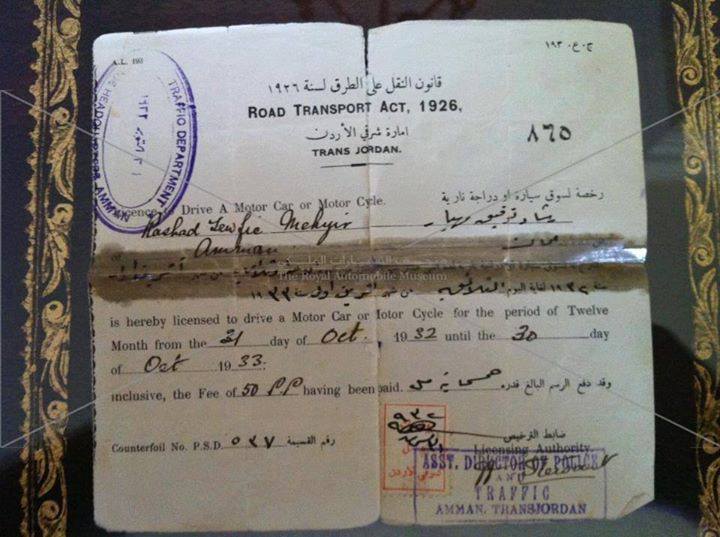 A.L. 193
ج.ع. ١٩٣
قانون النقل على الطرق لسنة ١٩٢٦
ROAD TRANSPORT ACT, 1926,
امارة شرقي الأردن
TRANS JORDAN.
٨٦٥
TRAFFIC DEPARTMENT
AMMAN
رخصة لسوق سيارة او دراجة نارية
Licence to Drive A Motor Car or Motor Cycle.
Rashad Tewfic
توفيق
Amman
The Royal Automobile Museum
سنة ١٩٣٢ لغاية اليوم الثلاثين من شهر تشرين اول سنة ١٩٣٣
is hereby licensed to drive a Motor Car or Motor Cycle for the period of Twelve
Month from the 31 day of Oct. 1932 until the 30 day
of Oct 1933.
inclusive, the Fee of 50 PP having been paid.
وقد دفع الرسم البالغ قدره
ضابط الترخيص
Licensing Authority
Counterfoil No. P.S.D. ٥٣٧ رقم القسيمة
شرقي الأردن
ASST. DIRECTOR OF POLICE
AND
TRAFFIC
AMMAN, TRANSJORDAN